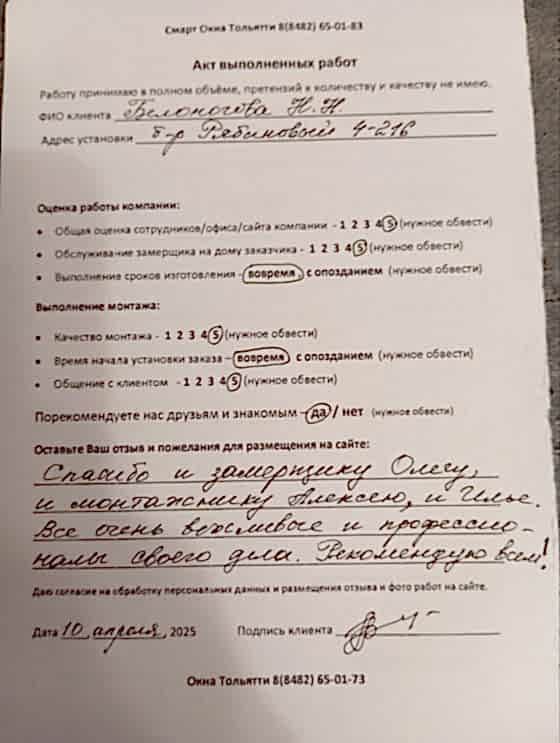 Смарт Окна Тольятти 8(8482) 65-01-83
Акт выполненных работ
Работу принимаю в полном объёме, претензий к количеству и качеству не имею.
ФИО клиента Белоногова Н.Н.
Адрес установки б-р Рябиновый 4-216
Оценка работы компании:
• Общая оценка сотрудников/офиса/сайта компании - 1 2 3 4 5 (нужное обвести)
• Обслуживание замерщика на дому заказчика - 1 2 3 4 5 (нужное обвести)
• Выполнение сроков изготовления - вовремя, с опозданием (нужное обвести)
Выполнение монтажа:
• Качество монтажа - 1 2 3 4 5 (нужное обвести)
• Время начала установки заказа – вовремя с опозданием (нужное обвести)
• Общение с клиентом - 1 2 3 4 5 (нужное обвести)
Порекомендуете нас друзьям и знакомым – да / нет (нужное обвести)
Оставьте Ваш отзыв и пожелания для размещения на сайте:
Спасибо и замерщику Олегу,
и монтажнику Алексею, и Илье.
Все очень вежливые и профессио-
налы своего дела. Рекомендую всем!
Даю согласие на обработку персональных данных и размещения отзыва и фото работ на сайте.
Дата 10 апреля, 2025 Подпись клиента
Окна Тольятти 8(8482) 65-01-73